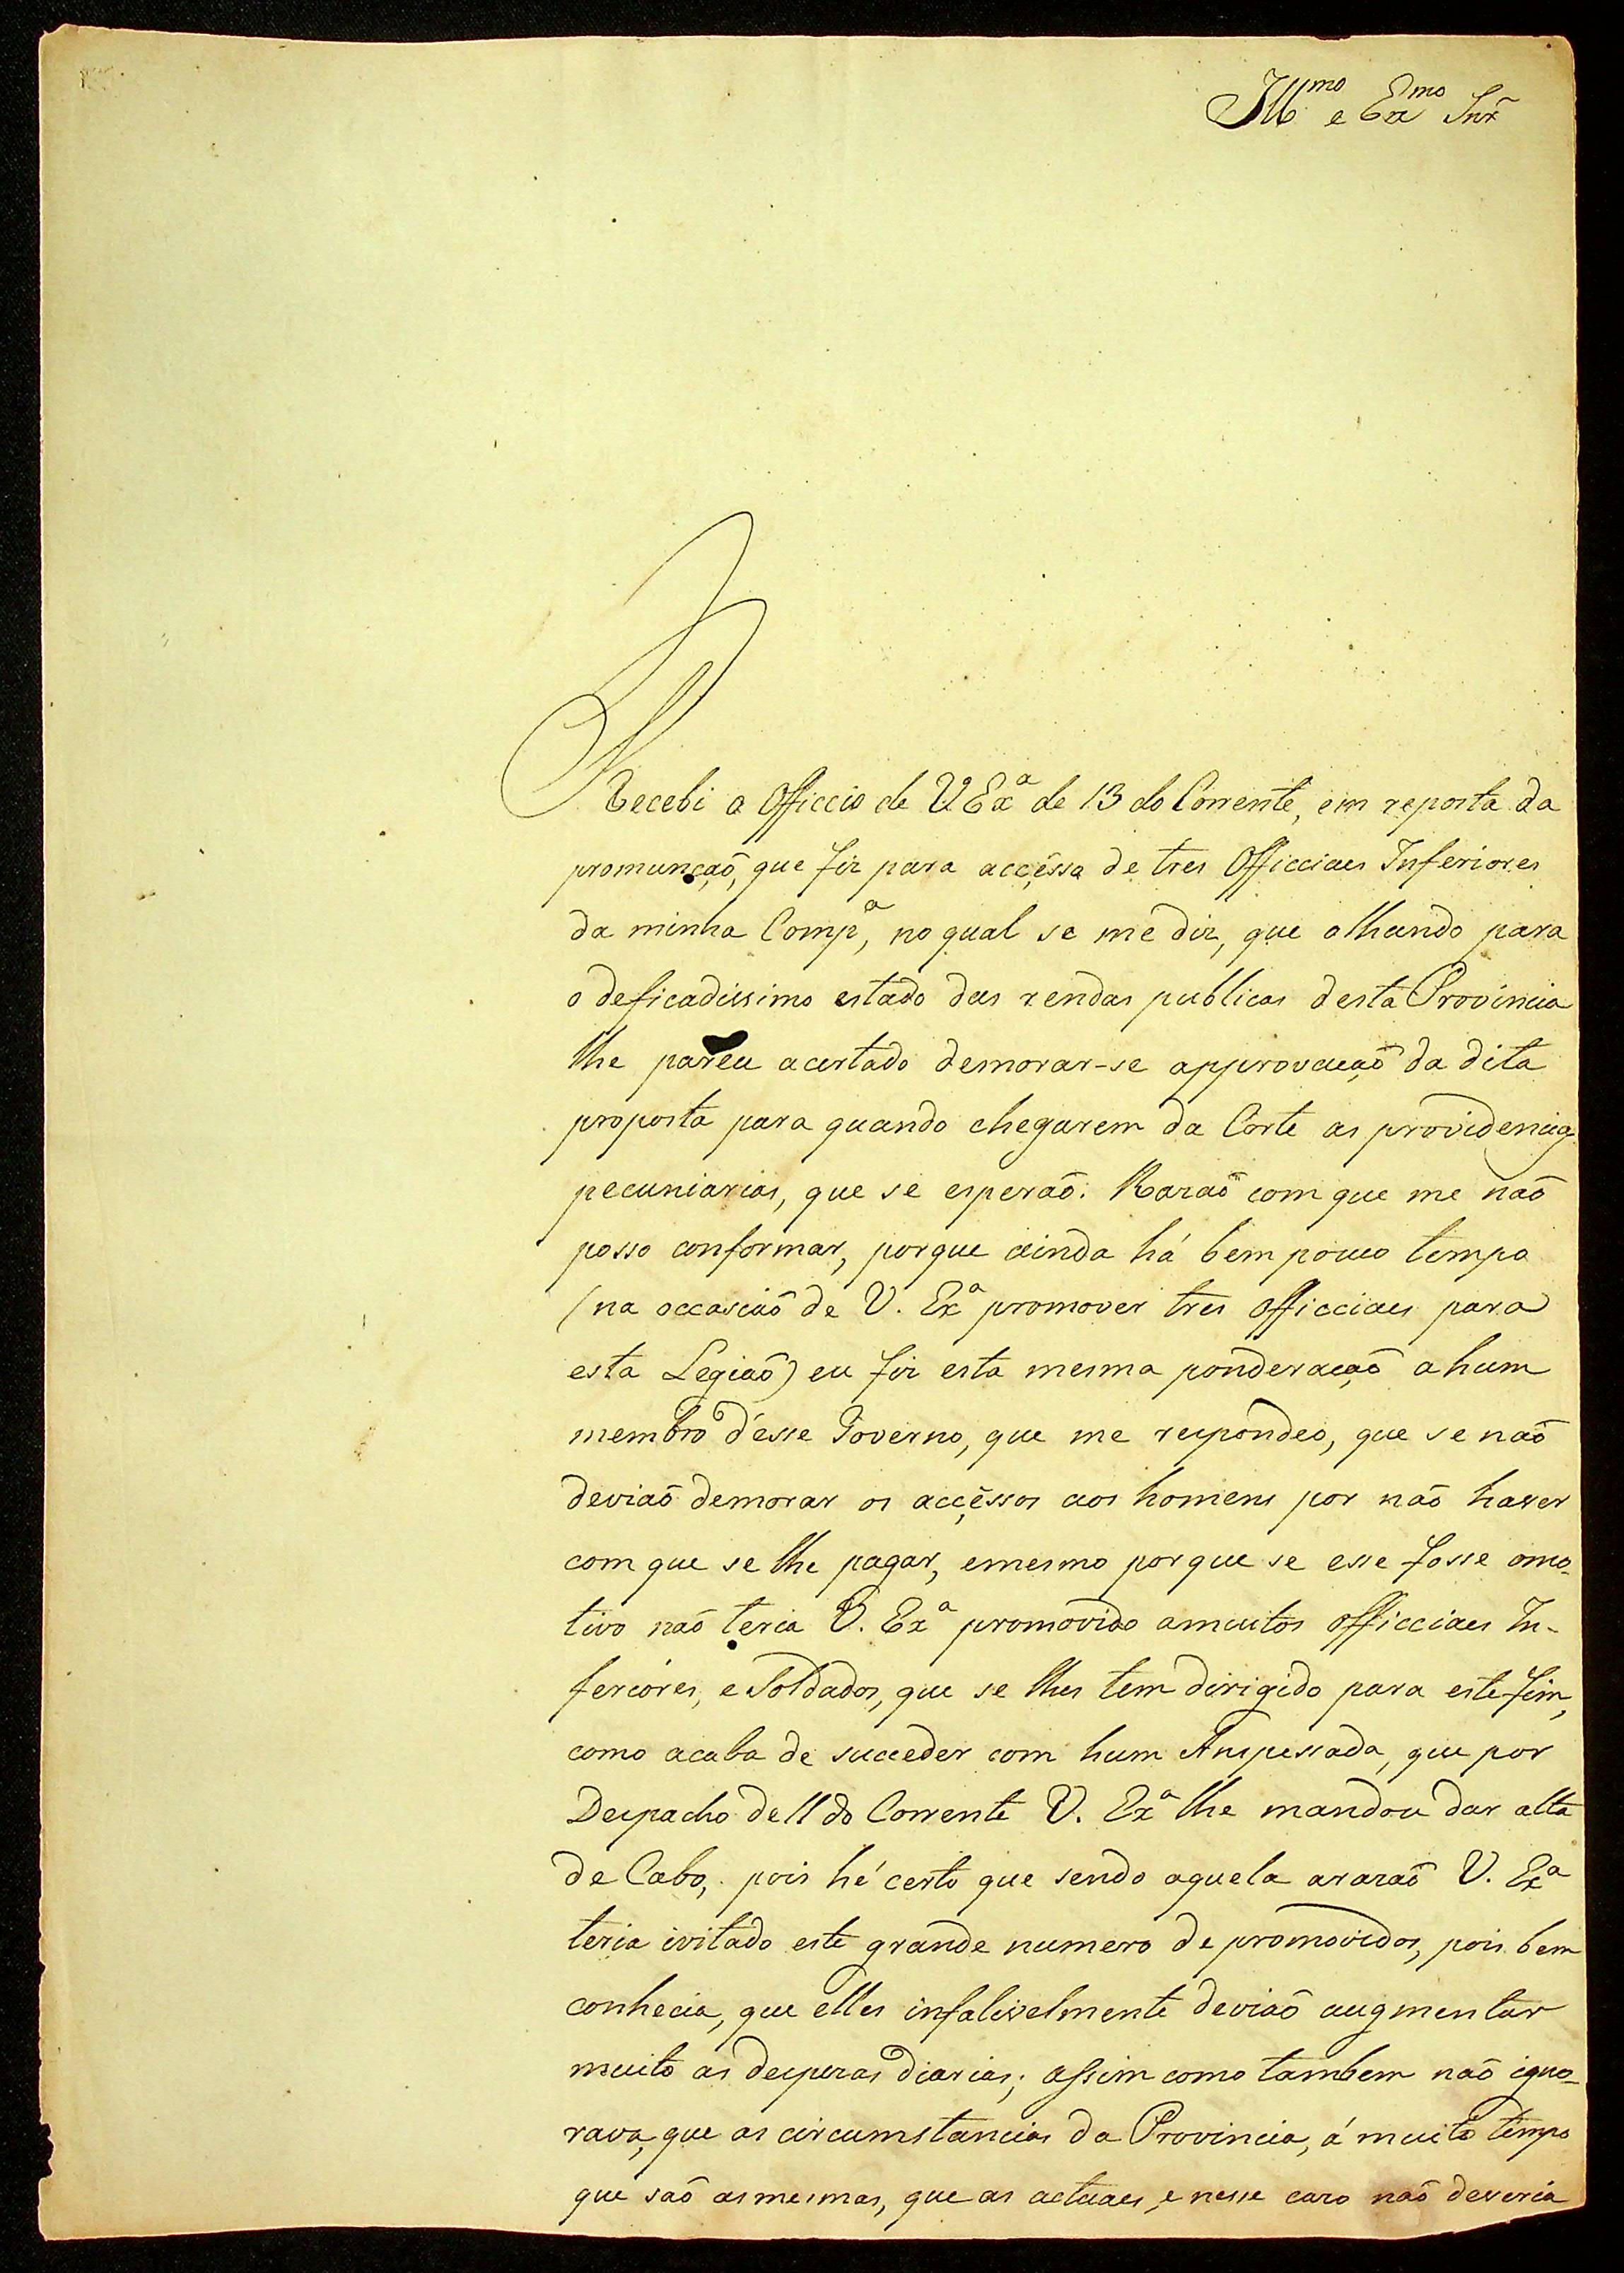 Ill.mo e Ex.mo Snr.
Recebi o Officio de V. Ex.a de 13 do Corrente, em reposta da
promunçaõ, que fiz para accésso de tres Officiaes Inferiores
da minha Comp.a, no qual se me diz, que olhando para
o deficadissimo estado das rendas publicas desta Provincia
lhe pareu acertado demorar-se approvaçaõ da dita
proposta para quando chegarem da Corte as providencias
pecuniarias, que se esperaõ. Razaõ com que me naõ
posso conformar, porque ainda há bem pouco tempo
(na occasiaõ de V. Ex.a promover tres officiaes para
esta Legiaõ) eu fiz esta mesma ponderaçaõ a hum
membro d'esse Governo, que me respondeo, que se naõ
deviaõ demorar os accéssos aos homens por naõ haver
com que se lhe pagar, e mesmo porque se esse fosse omo-
tivo naõ teria V. Ex.a promovido amuitos officiaes In-
feriores, e Soldados, que se lhes tem dirigido para este fim,
como acaba de succeder com hum Anspessada, que por
Despacho de 11 do Corrente V. Ex.a lhe mandou dar alta
de Cabo, pois hé certo que sendo aquela arazaõ V. Ex.a
teria ivitado este grande numero de promovidos, pois bem
conhecia, que elles infalivelmente deviaõ augmentar
muito as despezas diarias; assim como tambem naõ igno-
rava, que as circumstancias da Provincia, á muito tempo
que saõ asmesmas, que as actuaes, e nesse cazo naõ deveria